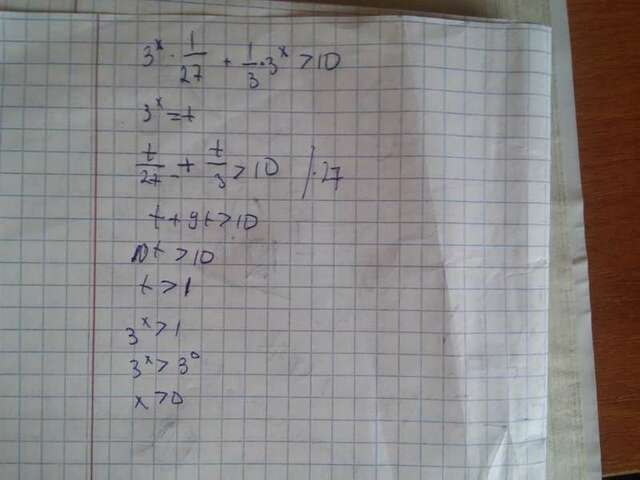 3^x · 1/27 + 1/3 · 3^x > 10
3^x = t
t/27 + t/3 > 10 /·27
t + 9t > 10
10t > 10
t > 1
3^x > 1
3^x > 3^0
x > 0